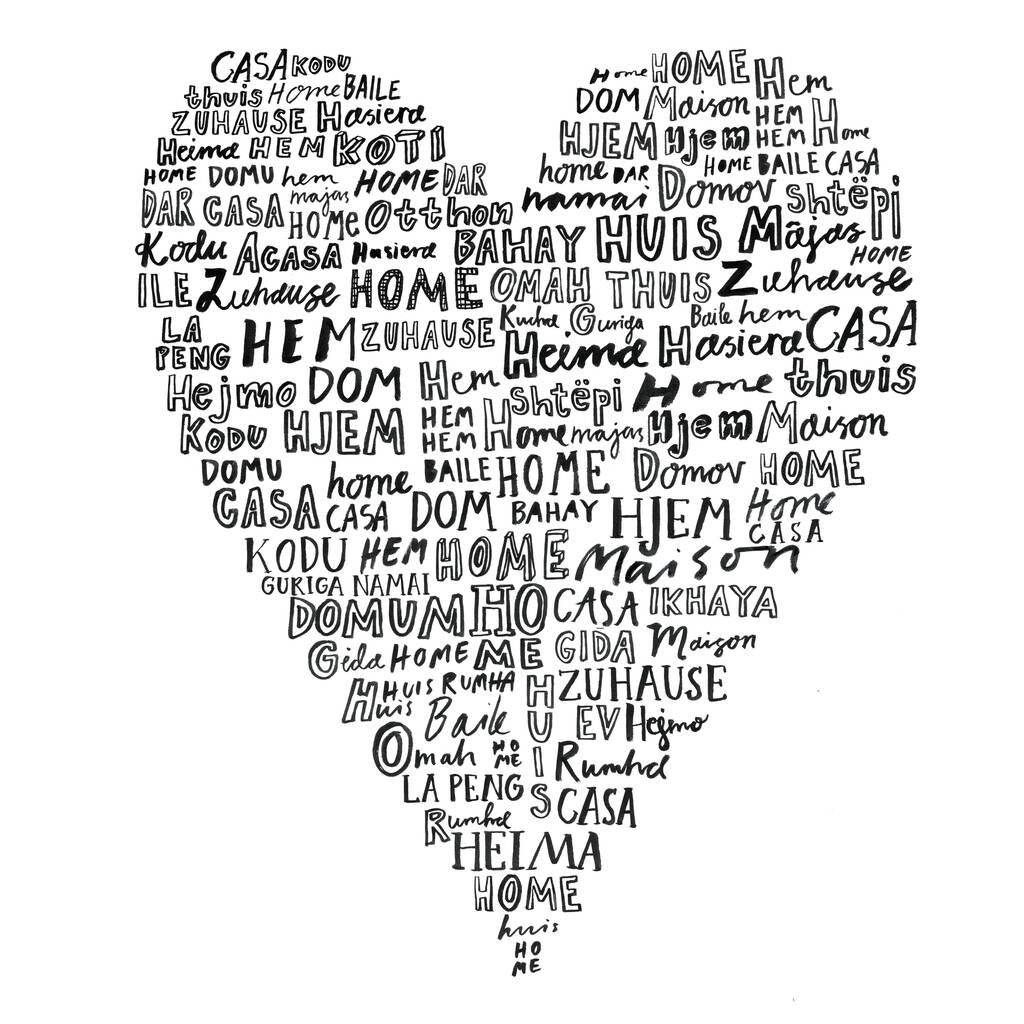 CASA KODU Home HOME Hem
thuis Home BAILE DOM Maison HEM H
ZUHAUSE Hasiera HJEM Hjem HEM ome
Heima HEM KOTI home DAR HOME BAILE CASA
HOME DOMU hem HOME DAR namai Domov shtëpi
DAR CASA majas HOME Otthon
Kodu ACASA Hasiera BAHAY HUIS Mãjas HOME
ILE Zuhause HOME OMAH THUIS Zuhause
LA PENG HEM ZUHAUSE Kucha Guriga Baile hem CASA
Heima Hasiera
Hejmo DOM Hem shtëpi Home thuis
KODU HJEM HEM HEM Home majas Hjem Maison
DOMU home BAILE HOME Domov HOME
CASA CASA DOM BAHAY HJEM Home CASA
KODU HEM HOME Maison
GURIGA NAMAI
DOMUM HOME CASA IKHAYA
Gida HOME GIDA Maison
Huis HUIS RUMHA HUIS ZUHAUSE
Baile EV Hejmo
Omah HOME Rumha
LA PENG CASA
Rumha
HEIMA
HOME
huis
HO
ME